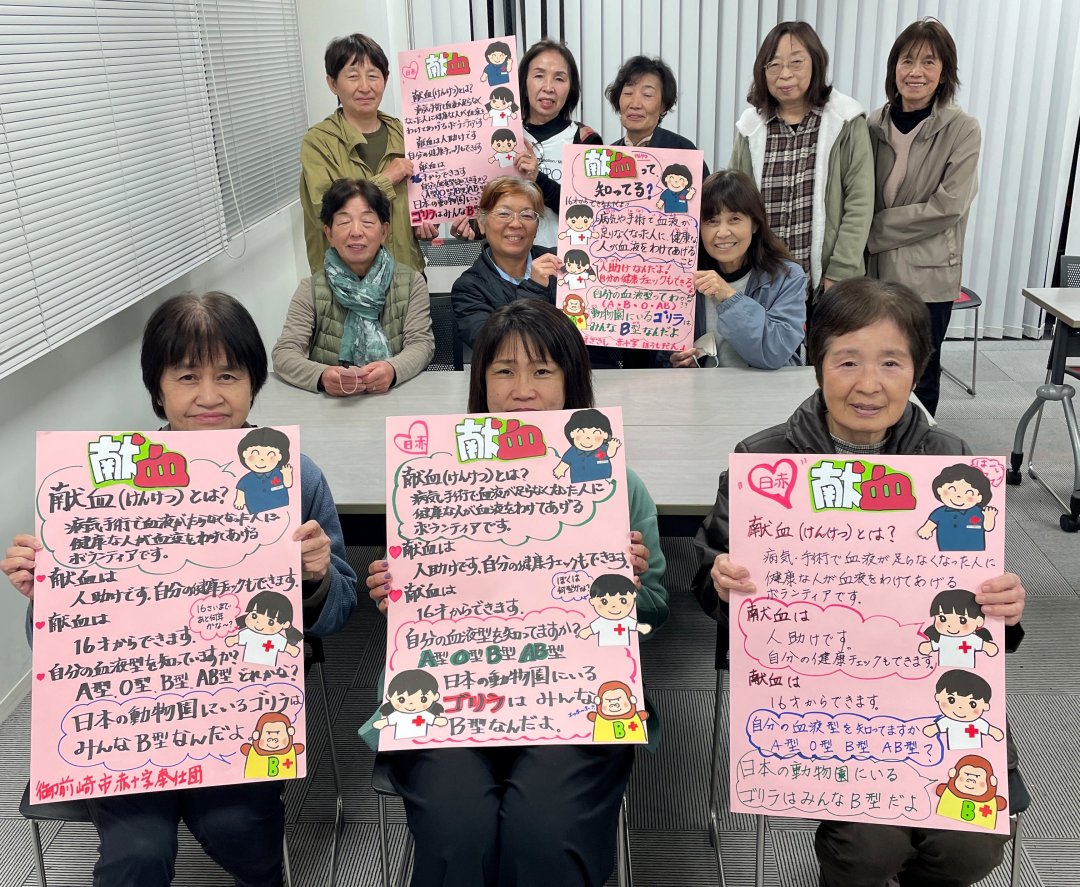 日赤
献血
献血(けんけつ)とは?
病気・手術で血液が足らなくて
なった人に健康な人が血液を
わけてあげるボランティア
献血は人助けです
自分の健康チェックもできます
献血は
才からできます
A型O型B型AB型
日本の動物園にいる
ゴリラはみんなB型
献血って、
知ってる?
16才からできるんだよっ
病気や手術で血液が
足りなくなった人に、健康な
人が血液をわけてあげる
こと
人助けなんだよ!
自分の健康チェックもできる
自分の血液型ってわかる?
(A・B・O・AB)
動物園にいるゴリラは
みんなB型なんだよ
献血
献血(けんけつ)とは?
病気・手術で血液がたらなくなった人に
健康な人が血液をわけてあげる
ボランティアです。
献血は
人助けです、自分の健康チェックもできます。
献血は
16才からできます。
16さいまで
あと何年
かな〜?
自分の血液型を知っていますか?
A型、O型、B型、AB型どれかな?
日本の動物園にいるゴリラは
みんなB型なんだよ。
B
御前崎市赤十字奉仕団
日赤
献血
献血(けんけつ)とは?
病気・手術で血液が足らなくなった人に
健康な人が血液をわけてあげる
ボランティアです。
献血は
人助けです、自分の健康チェックもできます。
献血は
16才からできます。
ぼくは
何型かな?
自分の血液型を知ってますか?
A型 O型 B型 AB型
日本の動物園にいる
ゴリラはみんな
B型なんだよ。
B
日赤
献血
献血(けんけつ)とは?
病気・手術で血液が足らなくなった人に
健康な人が血液をわけてあげる
ボランティアです。
献血は
人助けです。
自分の健康チェックもできます。
献血は
16才からできます。
自分の血液型を知ってますか
A型 O型 B型 AB型?
日本の動物園にいる
ゴリラはみんなB型だよ
B